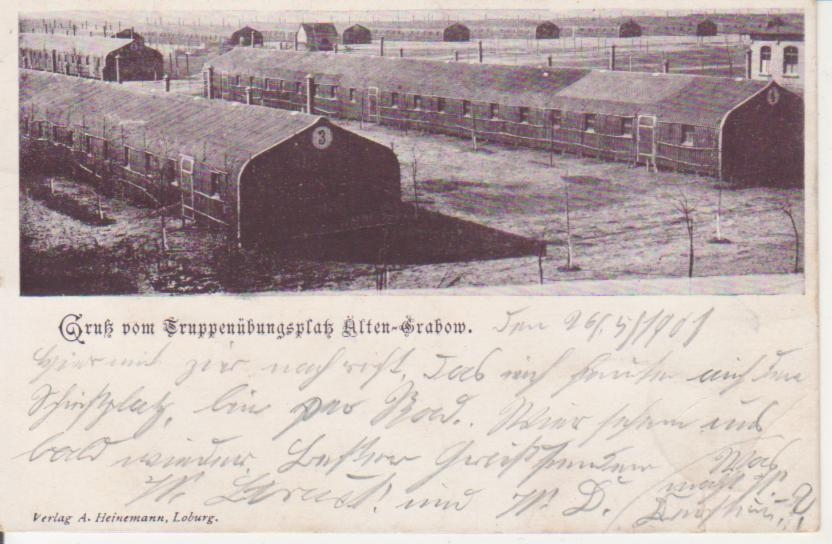 3
Gruß vom Truppenübungsplatz Alten-Grabow. Den 26/5/1901
Hiermit zier nachricht, das ich heute auf den
Schießplatz, bin per Rad. Wier sehen uns
bald wieder. Besten Gruß senden Was
W. und W. D.
Verlag A. Heinemann, Loburg.